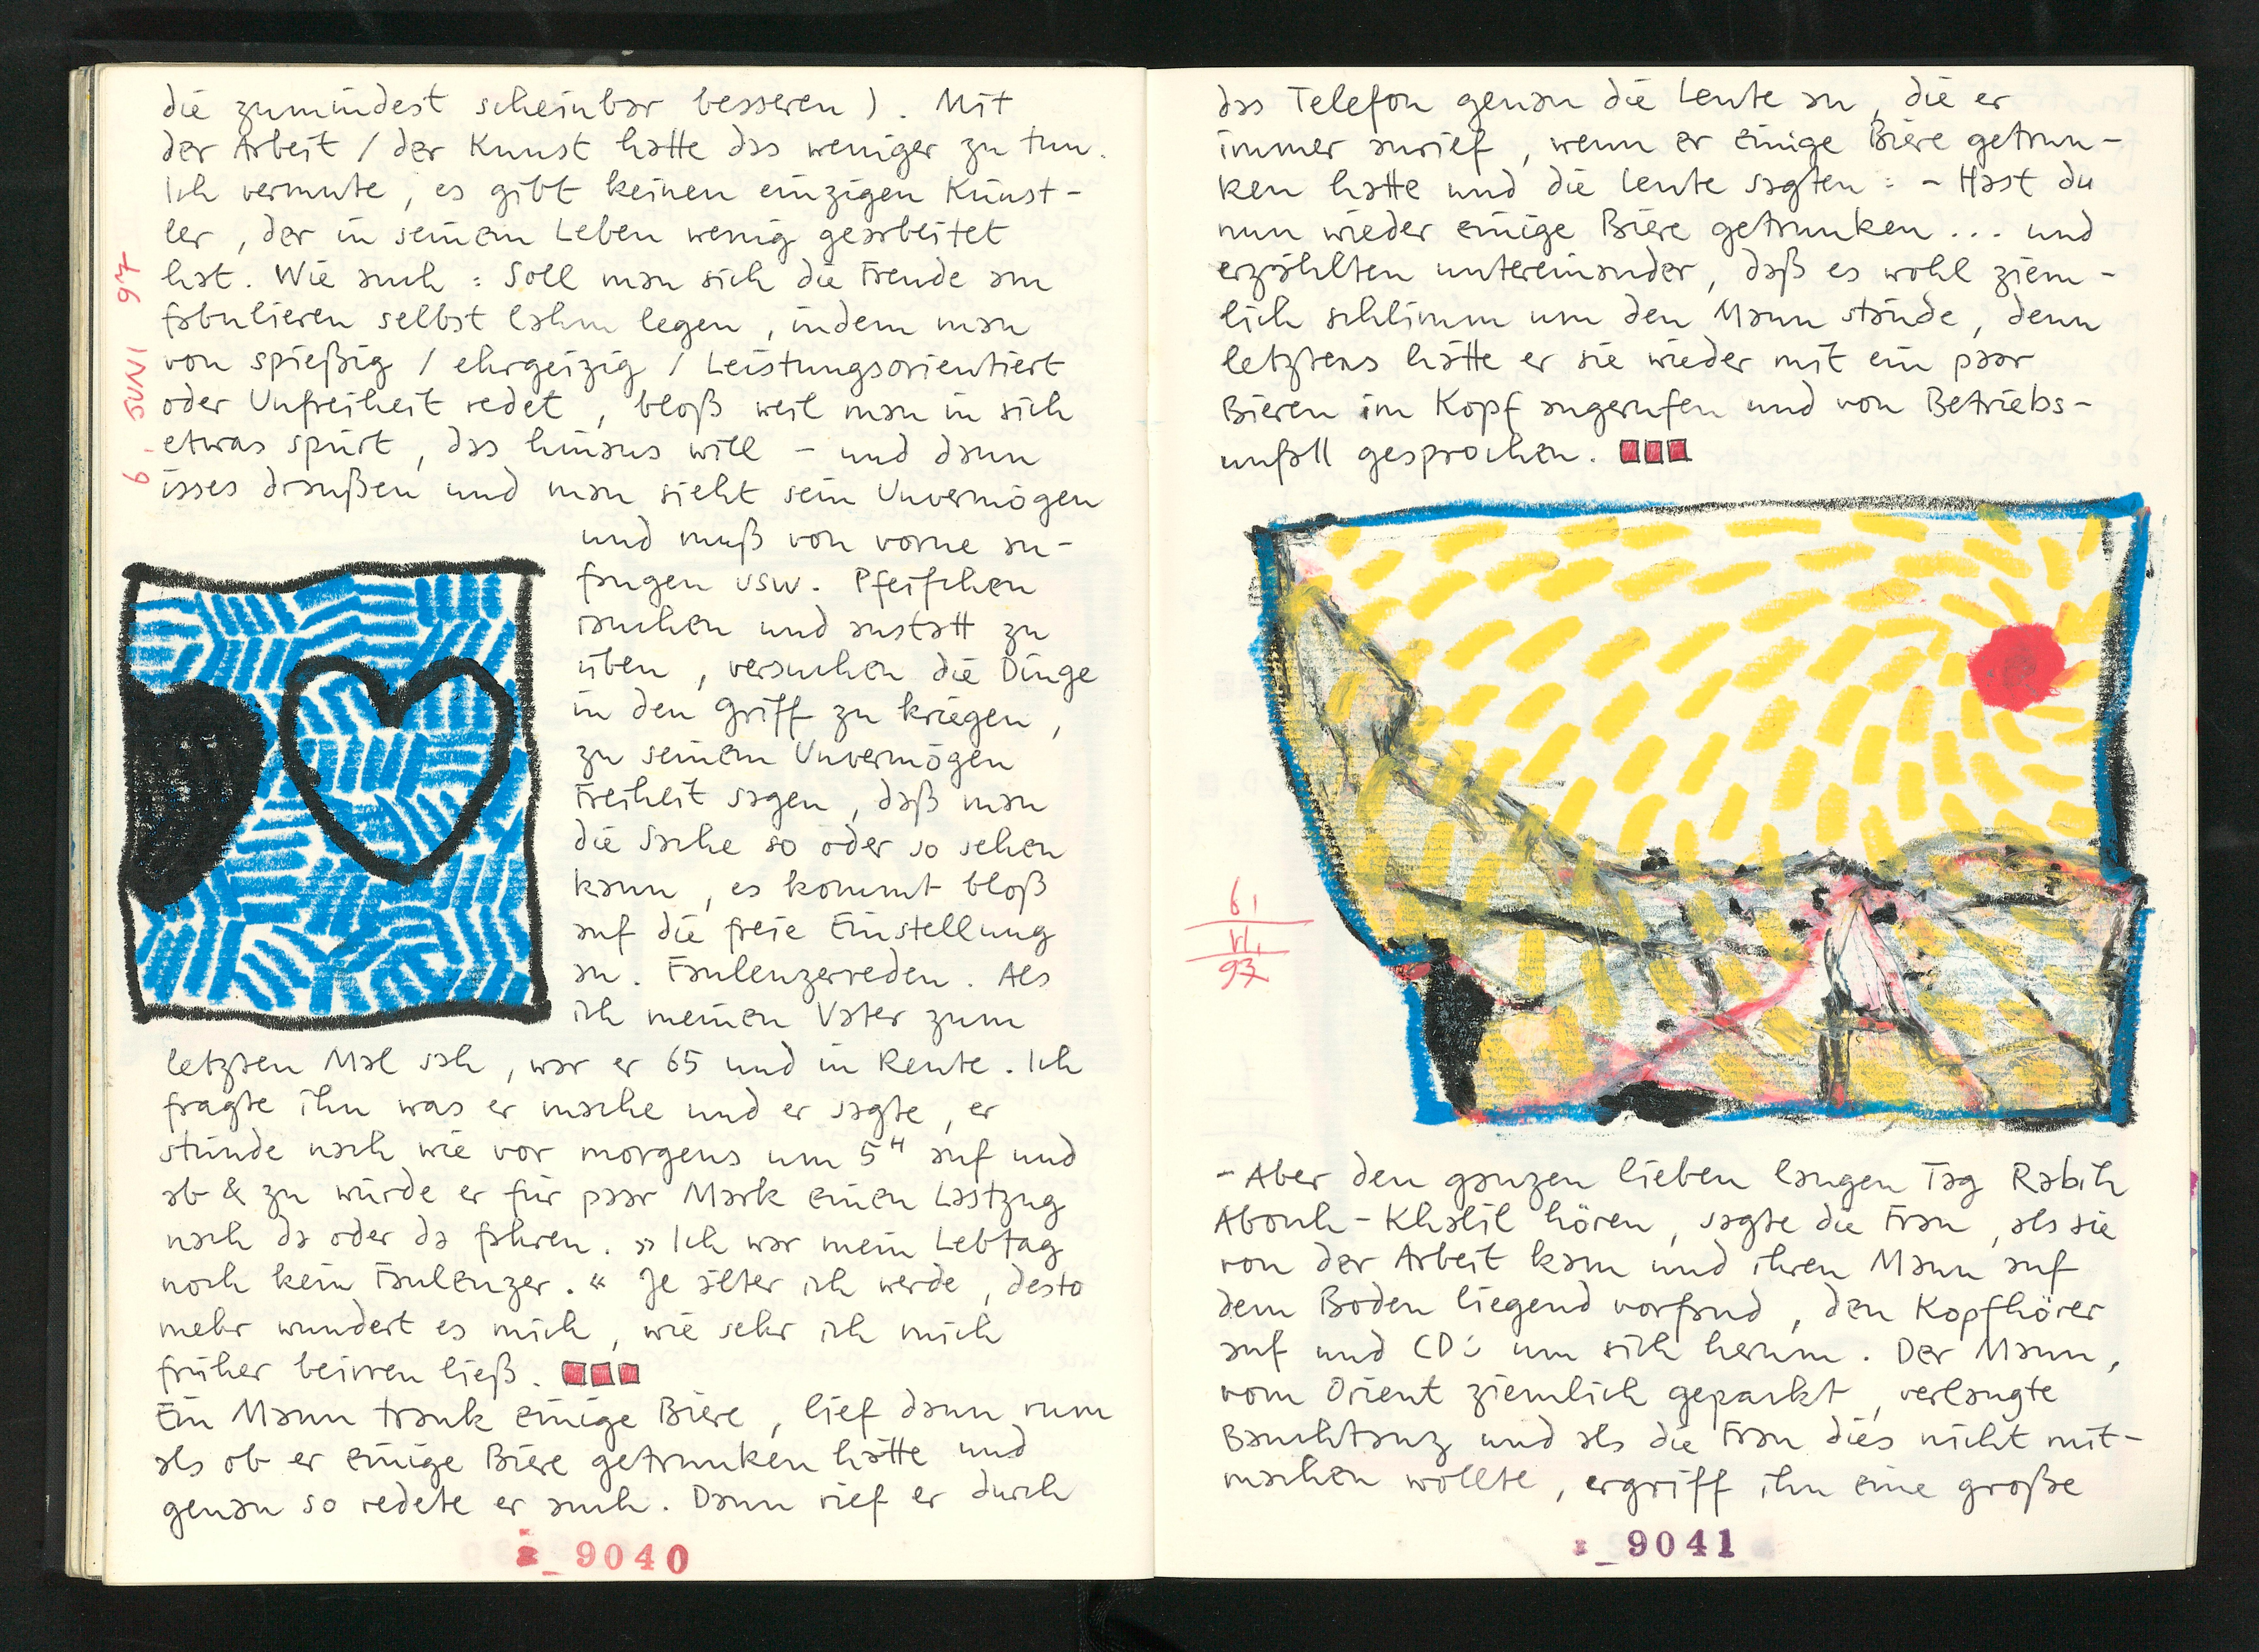 die zumindest scheinbar besseren). Mit
der Arbeit / der Kunst hatte das weniger zu tun.
Ich vermute, es gibt keinen einzigen Künst-
ler, der in seinem Leben wenig gearbeitet
hat. Wie auch: Soll man sich die Freude am
fabulieren selbst lahm legen, indem man
von spießig / ehrgeizig / Leistungsorientiert
oder Unfreiheit redet, bloß weil man in sich
etwas spürt, das hinaus will – und dann
isses draußen und man sieht sein Unvermögen
und muß von vorne an-
fangen usw. Pfeifchen
rauchen und anstatt zu
üben, versuchen die Dinge
in den Griff zu kriegen,
zu seinem Unvermögen
Freiheit sagen, daß man
die Sache so oder so sehen
kann, es kommt bloß
auf die freie Einstellung
an. Faulenzerreden. Als
ich meinen Vater zum
letzten Mal sah, war er 65 und in Rente. Ich
fragte ihn was er mache und er sagte, er
stünde nach wie vor morgens um 5ᴴ auf und
ab & zu würde er für paar Mark einen Lastzug
nach da oder da fahren. »Ich war mein Lebtag
noch kein Faulenzer.« Je älter ich werde, desto
mehr wundert es mich, wie sehr ich mich
früher beirren ließ.
Ein Mann trank einige Biere, lief dann rum
als ob er einige Biere getrunken hätte und
genau so redete er auch. Dann rief er durch
6. JUNI 97
9040
das Telefon genau die Leute an, die er
immer anrief, wenn er einige Biere getrun-
ken hatte und die Leute sagten: – Hast du
nun wieder einige Biere getrunken... und
erzählten untereinander, daß es wohl ziem-
lich schlimm um den Mann stände, denn
letztens hätte er sie wieder mit ein paar
Bieren im Kopf angerufen und von Betriebs-
unfall gesprochen.
6.
VI.
97
– Aber den ganzen lieben langen Tag Rabih
Abouh-Khalil hören, sagte die Frau, als sie
von der Arbeit kam und ihren Mann auf
dem Boden liegend vorfand, den Kopfhörer
auf und CD's um sich herum. Der Mann,
vom Orient ziemlich gepackt, verlangte
Bauchtanz und als die Frau dies nicht mit-
machen wollte, ergriff ihn eine große
9041